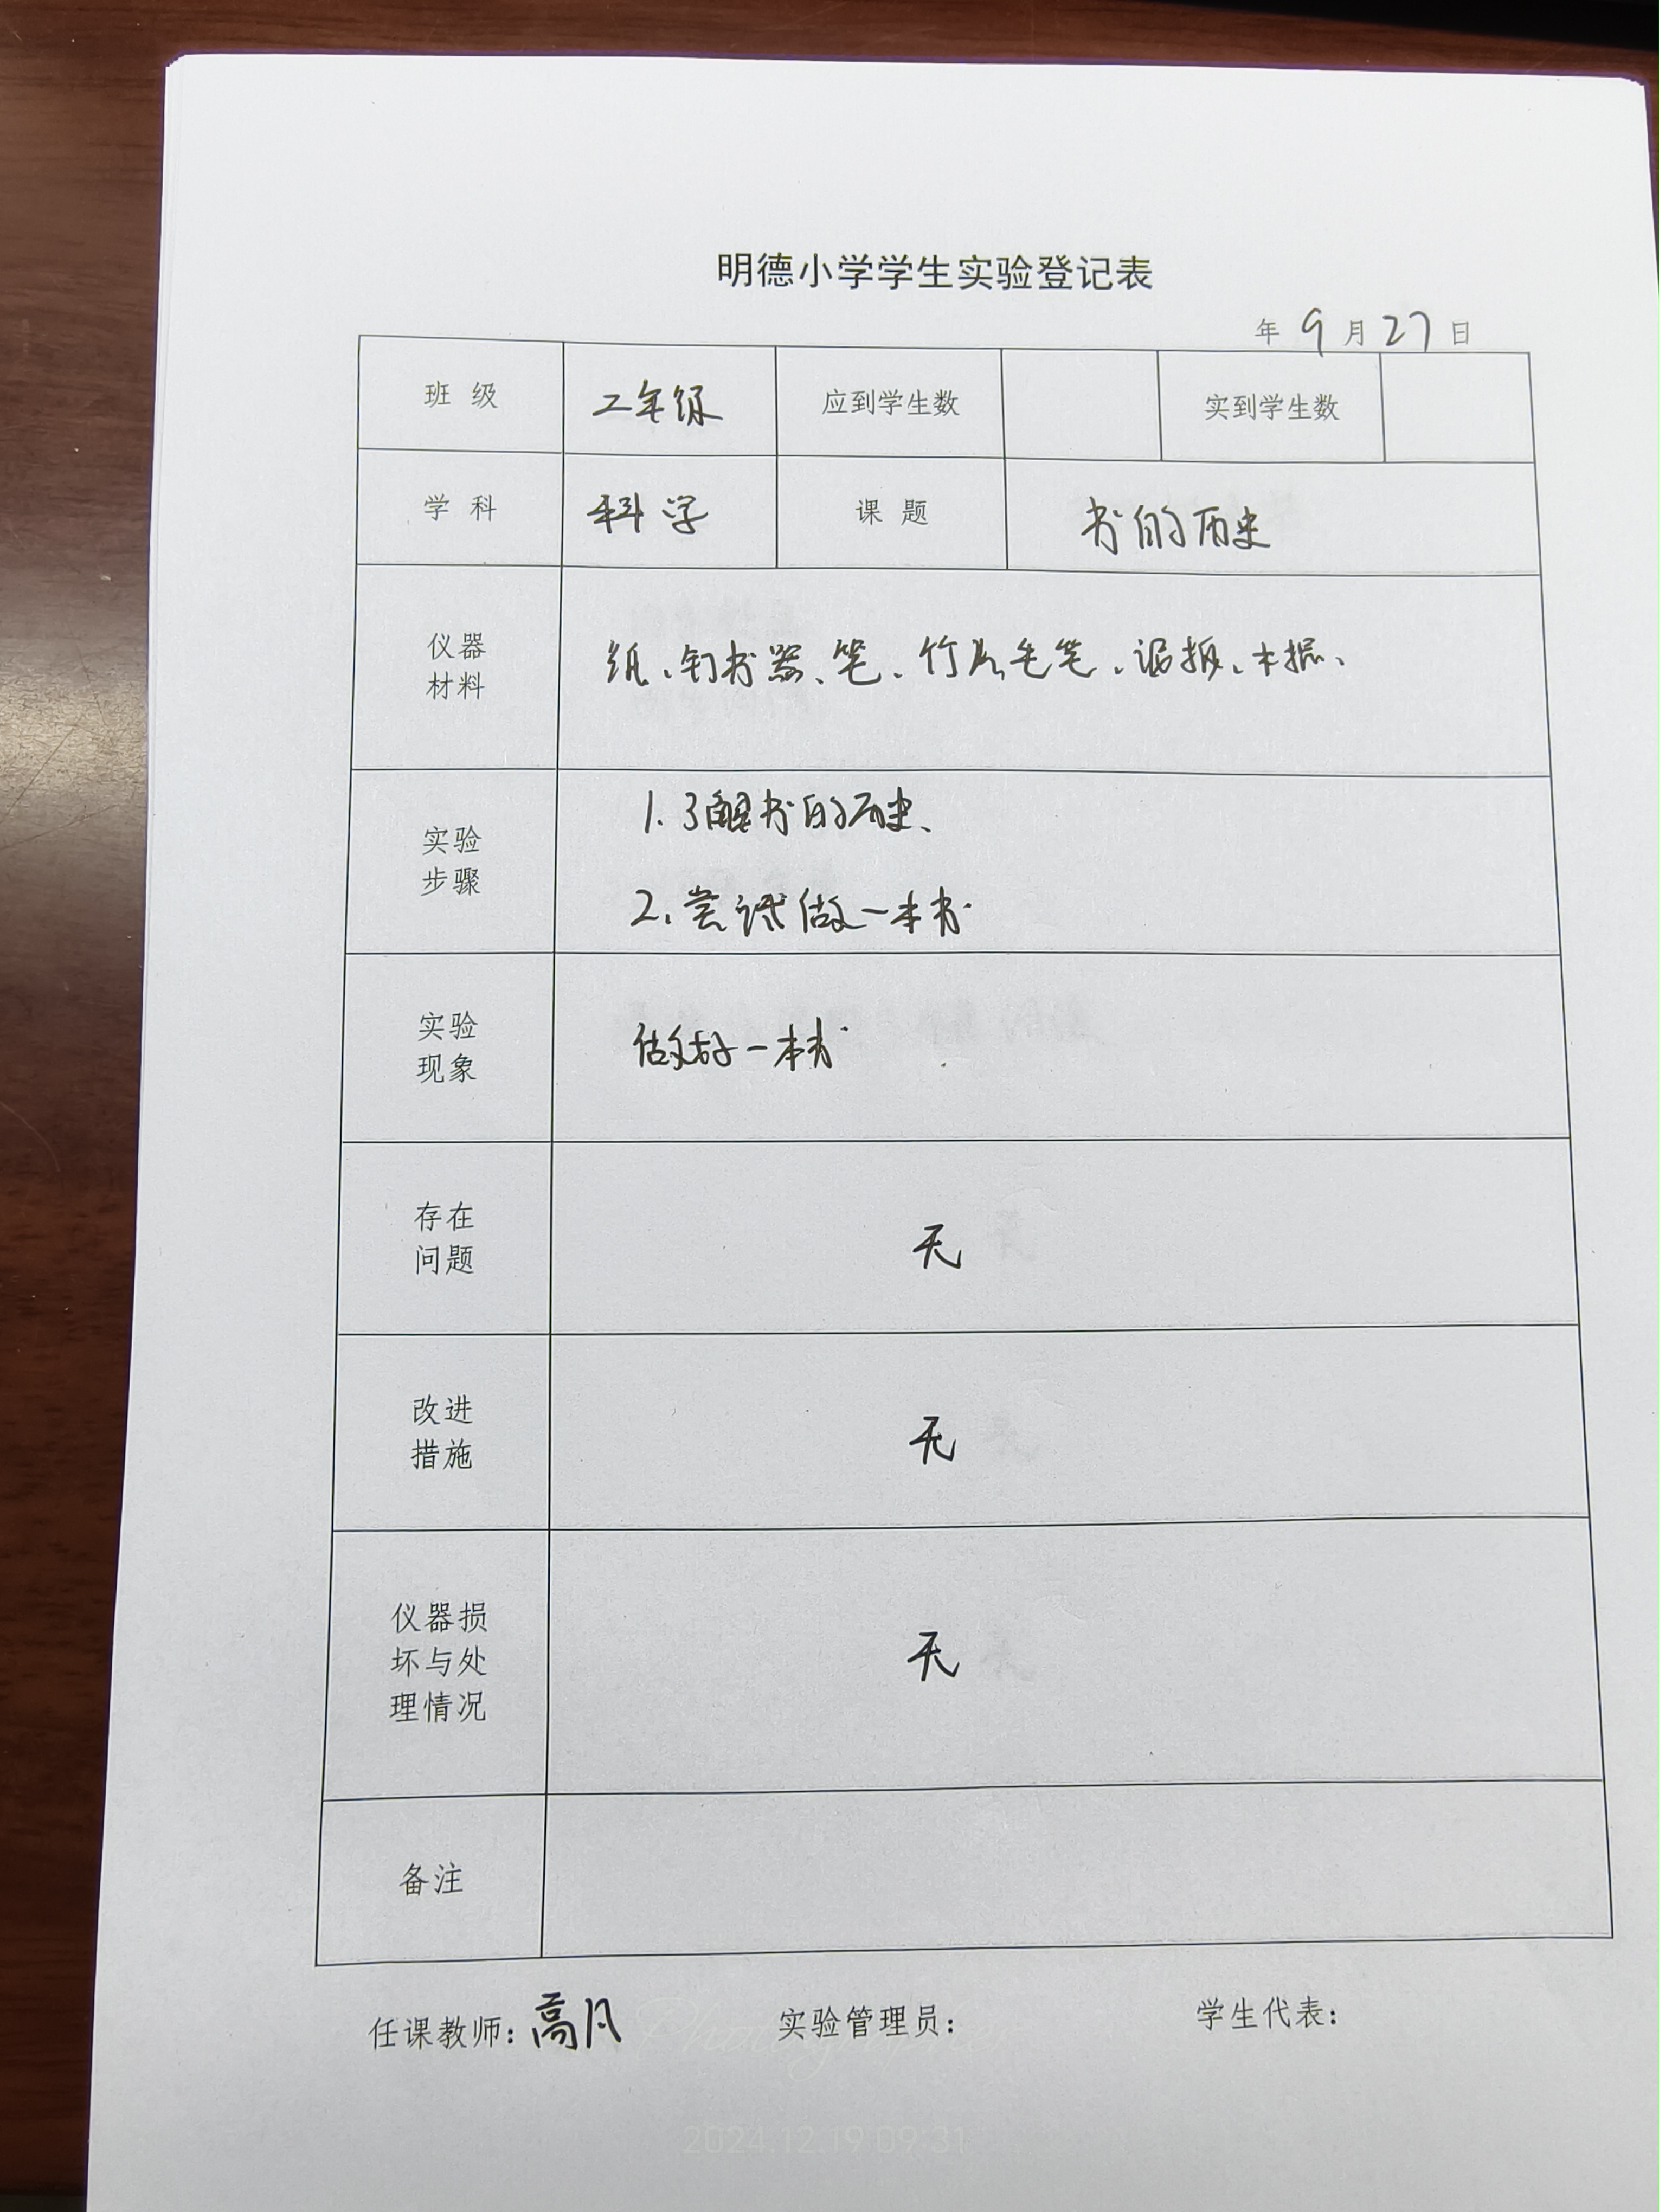 明德小学学生实验登记表
年 9 月 27 日
班 级 二年级 应到学生数 实到学生数
学 科 科学 课 题 书的历史
仪器
材料
纸、钉书器、笔、竹片毛笔、
实验
步骤
1. 了解书的历史、
2. 尝试做一本书
实验
现象
做好一本书
存在
问题
无
改进
措施
无
仪器损
坏与处
理情况
无
备注
任课教师：高凡 实验管理员： 学生代表：
Photograph
2024.12.19 09:31